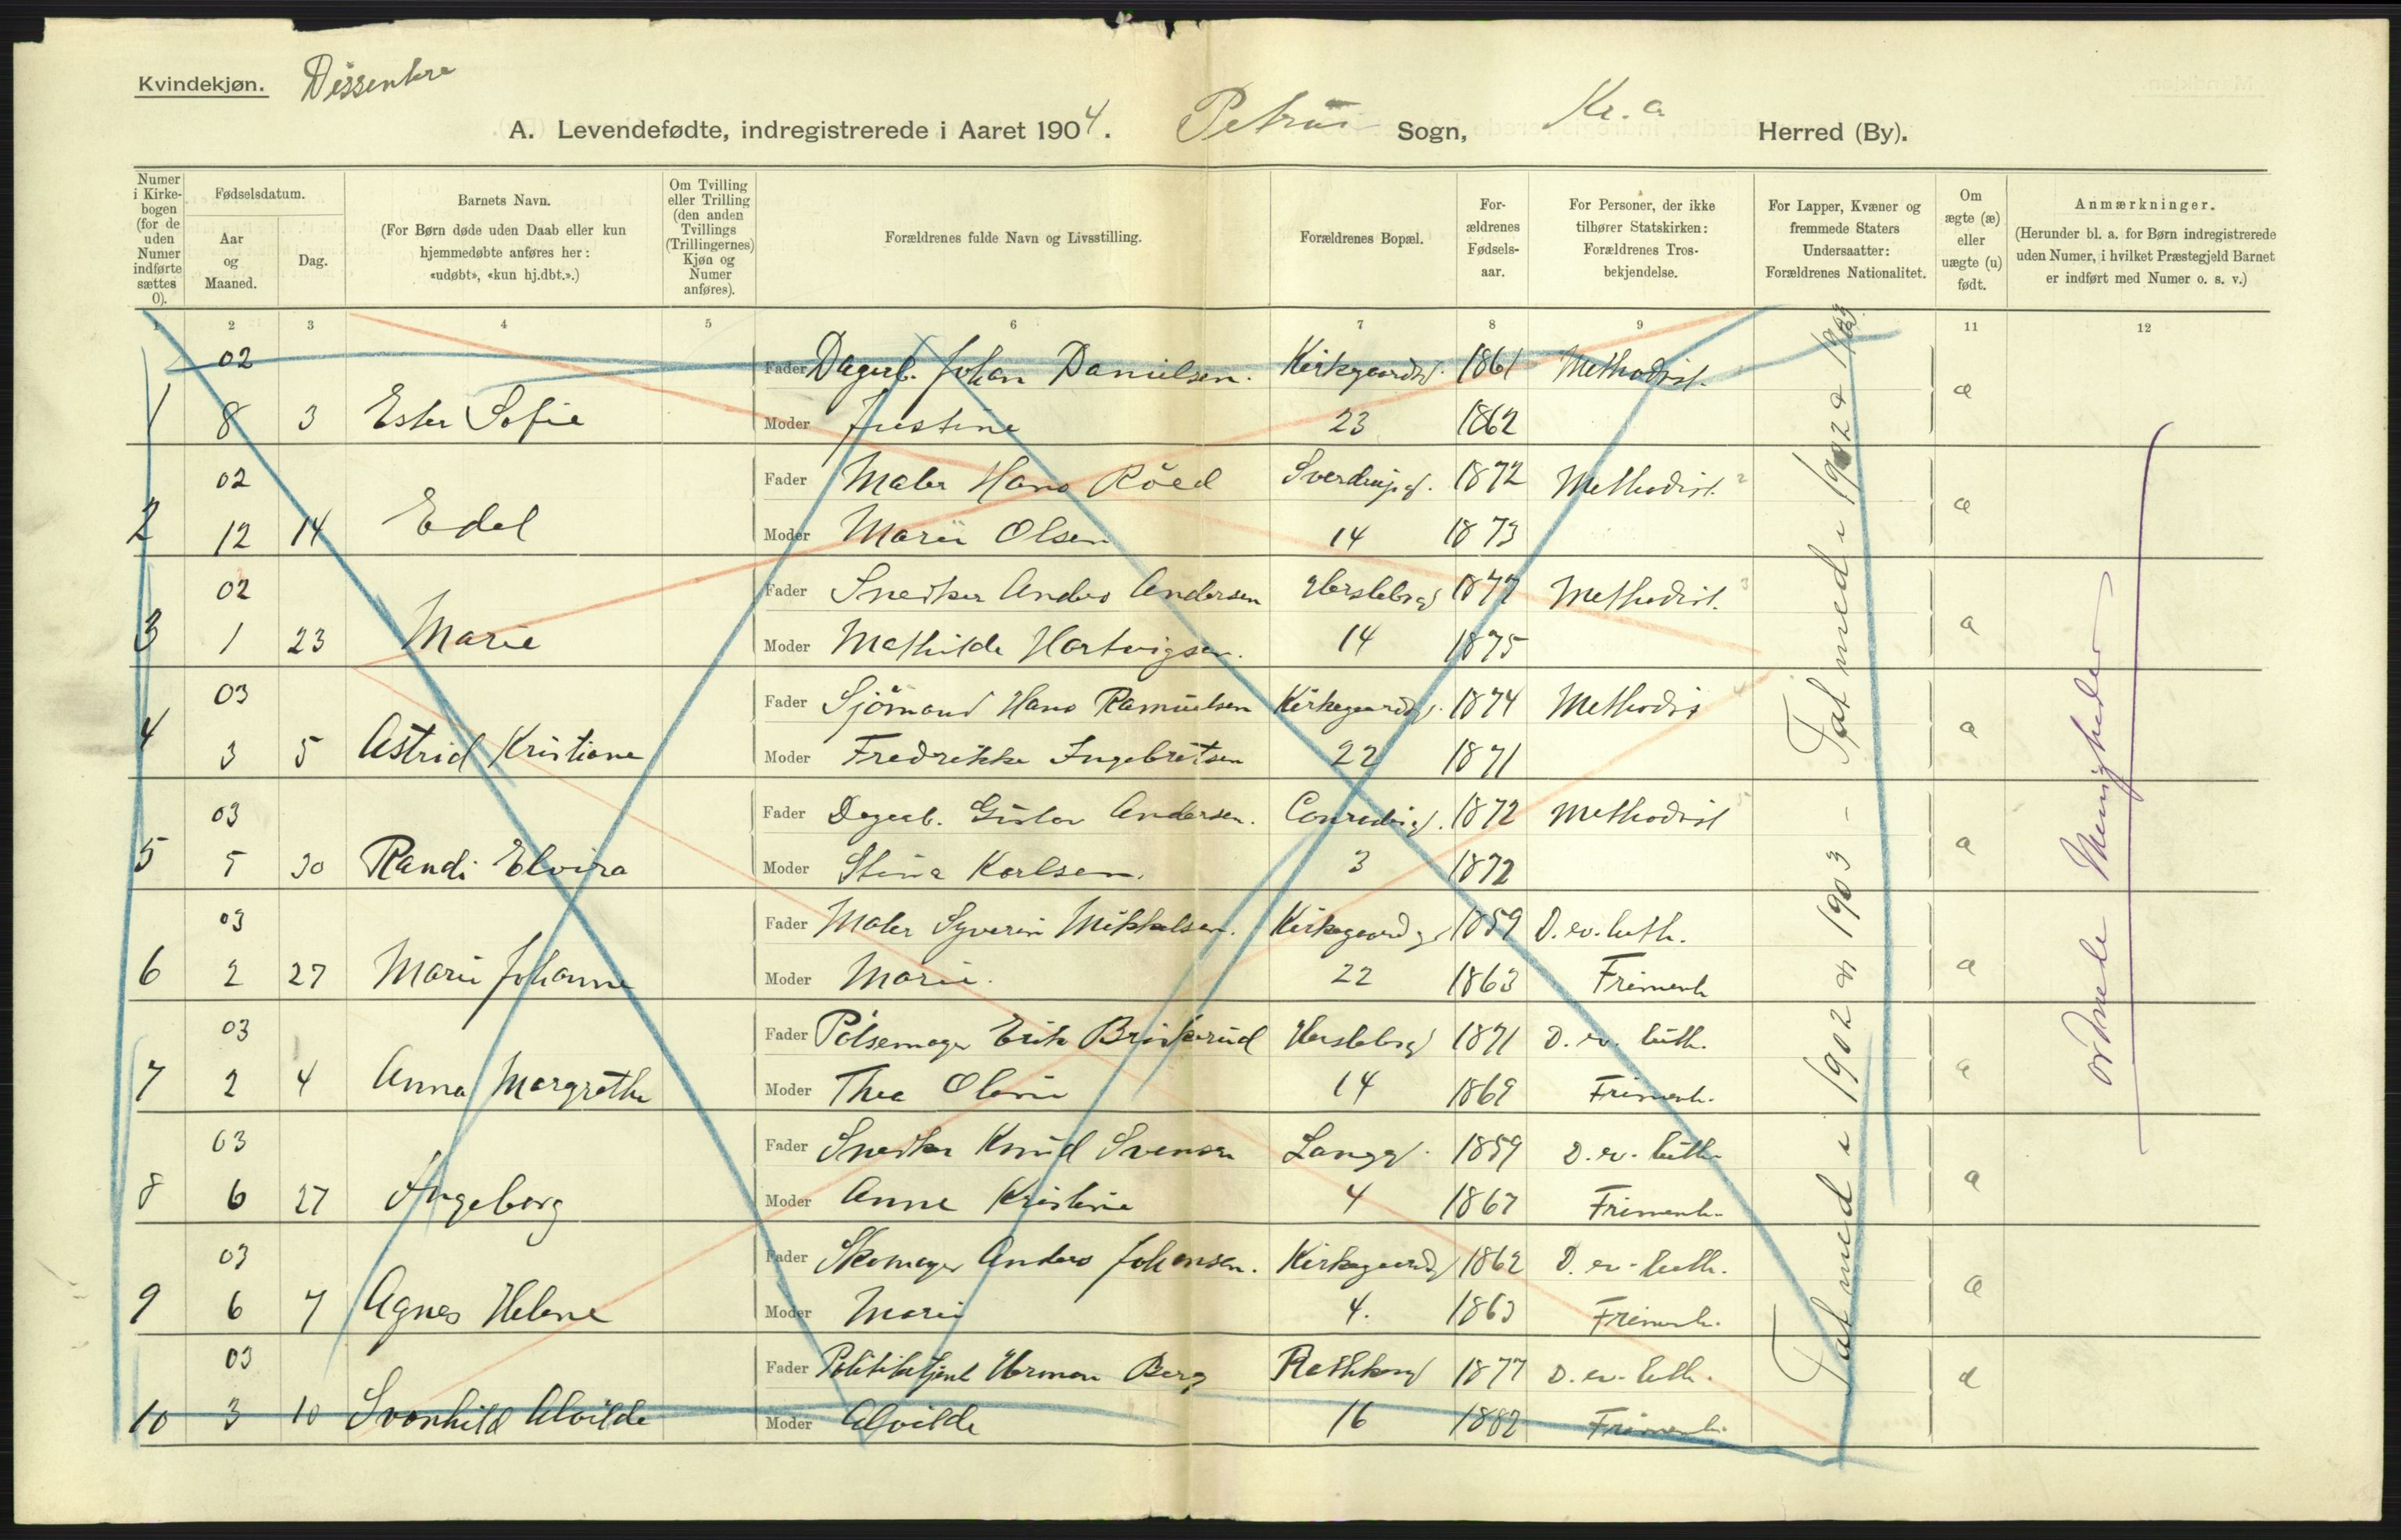 Kvindekjøn. Dissentere
A. Levendefødte, indregistrerede i Aaret 1904. Petrus Sogn, Kr.a Herred (By).
Numer i Kirke-bogen (for de uden Numer indførte sættes 0).
Fødselsdatum.
Aar og Maaned.
Dag.
Barnets Navn.
(For Børn døde uden Daab eller kun hjemmedøbte anføres her: «udøbt», «kun hj.dbt.».)
Om Tvilling eller Trilling (den anden Tvillings (Trillingernes) Kjøn og Numer anføres).
Forældrenes fulde Navn og Livsstilling.
Forældrenes Bopæl.
For-ældrenes Fødsels-aar.
For Personer, der ikke tilhører Statskirken: Forældrenes Tros-bekjendelse.
For Lapper, Kvæner og fremmede Staters Undersaatter: Forældrenes Nationalitet.
Om ægte (æ) eller uægte (u) født.
Anmærkninger.
(Herunder bl. a. for Børn indregistrerede uden Numer, i hvilket Præstegjeld Barnet er indført med Numer o. s. v.)
1 2 3 4 5 6 7 8 9 11 12
02 Fader Dagarb. Johan Danielsen. Kirkegaardsg. 1861 Methodist.
1 8 3 Ester Sofie Moder Justine 23 1862 æ
02 Fader Maler Hans Röed Sverdrupsg. 1872 Methodist. 2
2 12 14 Edel Moder Marie Olsen 14 1873 æ
02 Fader Snedker Anders Andersen Herslebsg 1877 Methodist. 3
3 1 23 Marie Moder Mathilde Hartvigsen. 14 1875 æ
03 Fader Sjömand Hans Ramuelsen Kirkegaardsg. 1874 Methodis 4
4 3 5 Astrid Kristiane Moder Fredrikke Ingebretsen 22 1871 æ
03 Fader Dagarb. Gustav Andersen. Conradisg. 1872 Methodist 5
5 5 30 Randi Elvira Moder Stina Karlsen. 3 1872 æ
03 Fader Maler Syverin Mikkelsen. Kirkegaardsg 1859 D. ev. luth.
6 2 27 Marie Johanne Moder Marie. 22 1863 Frimenh æ
03 Fader Pölsemager Erik Herslebsg 1871 D. ev. luth.
7 2 4 Anna Margrethe Moder Thea Oline 14 1869 Frimenh. æ
03 Fader Snedker Knud Svensen Langg. 1859 D. ev. luth.
8 6 27 Ingeborg Moder Anne Kristine 4 1867 Frimenh. æ
03 Fader Skomager Anders Johansen. Kirkegaardsg 1862 D. ev. luth.
9 6 7 Agnes Helene Moder Marie 4. 1863 Frimenh. æ
03 Fader Politibetjent Herman Berg Rathkesg 1877 D. ev. luth.
10 3 10 Svanhild Alvilde Moder Alvilde 16 1882 Frimenh. æ
Tat med i 1902 & 1903 -
Tat med i 1902 & 1903
ordnede Menigheder